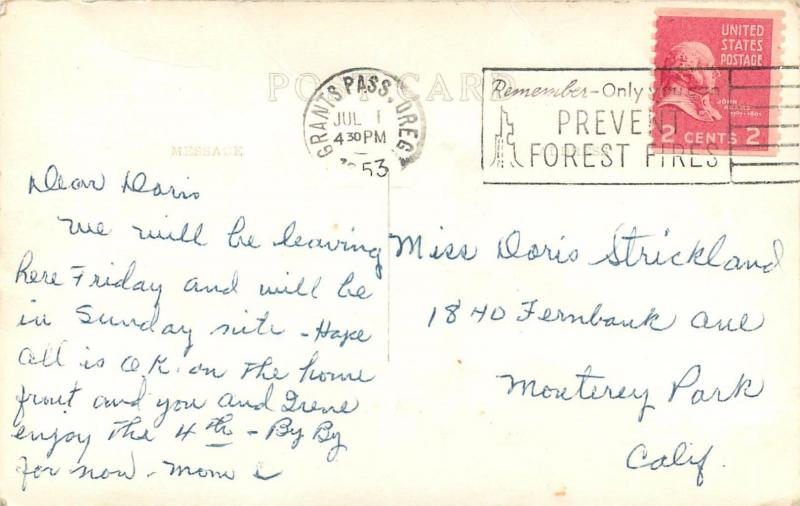 POST CARD
GRANTS PASS, OREG.
JUL 1
4 30 PM
1953
Remember - Only you can
PREVENT
FOREST FIRES
UNITED
STATES
POSTAGE
JOHN ADAMS
1797-1801
2 CENTS 2
MESSAGE
Dear Doris
We will be leaving
here Friday and will be
in Sunday nite - Hope
all is O.K. on the home
front and you and Irene
enjoy the 4th - By By
for now - Mom
Miss Doris Strickland
1840 Fernbank Ave
Monterey Park
Calif.